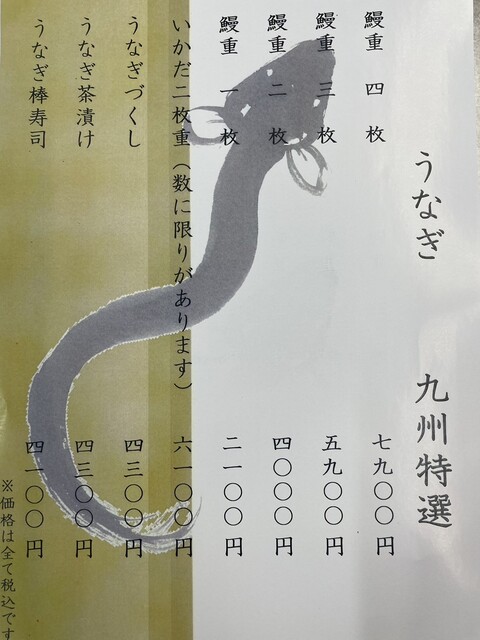 うなぎ 九州特選
鰻重 四 枚 七九〇〇円
鰻重 三 枚 五九〇〇円
鰻重 二 枚 四〇〇〇円
鰻重 一 枚 二一〇〇円
いかだ二枚重（数に限りがあります） 六一〇〇円
うなぎづくし 四三〇〇円
うなぎ茶漬け 四三〇〇円
うなぎ棒寿司 四一〇〇円
※価格は全て税込です